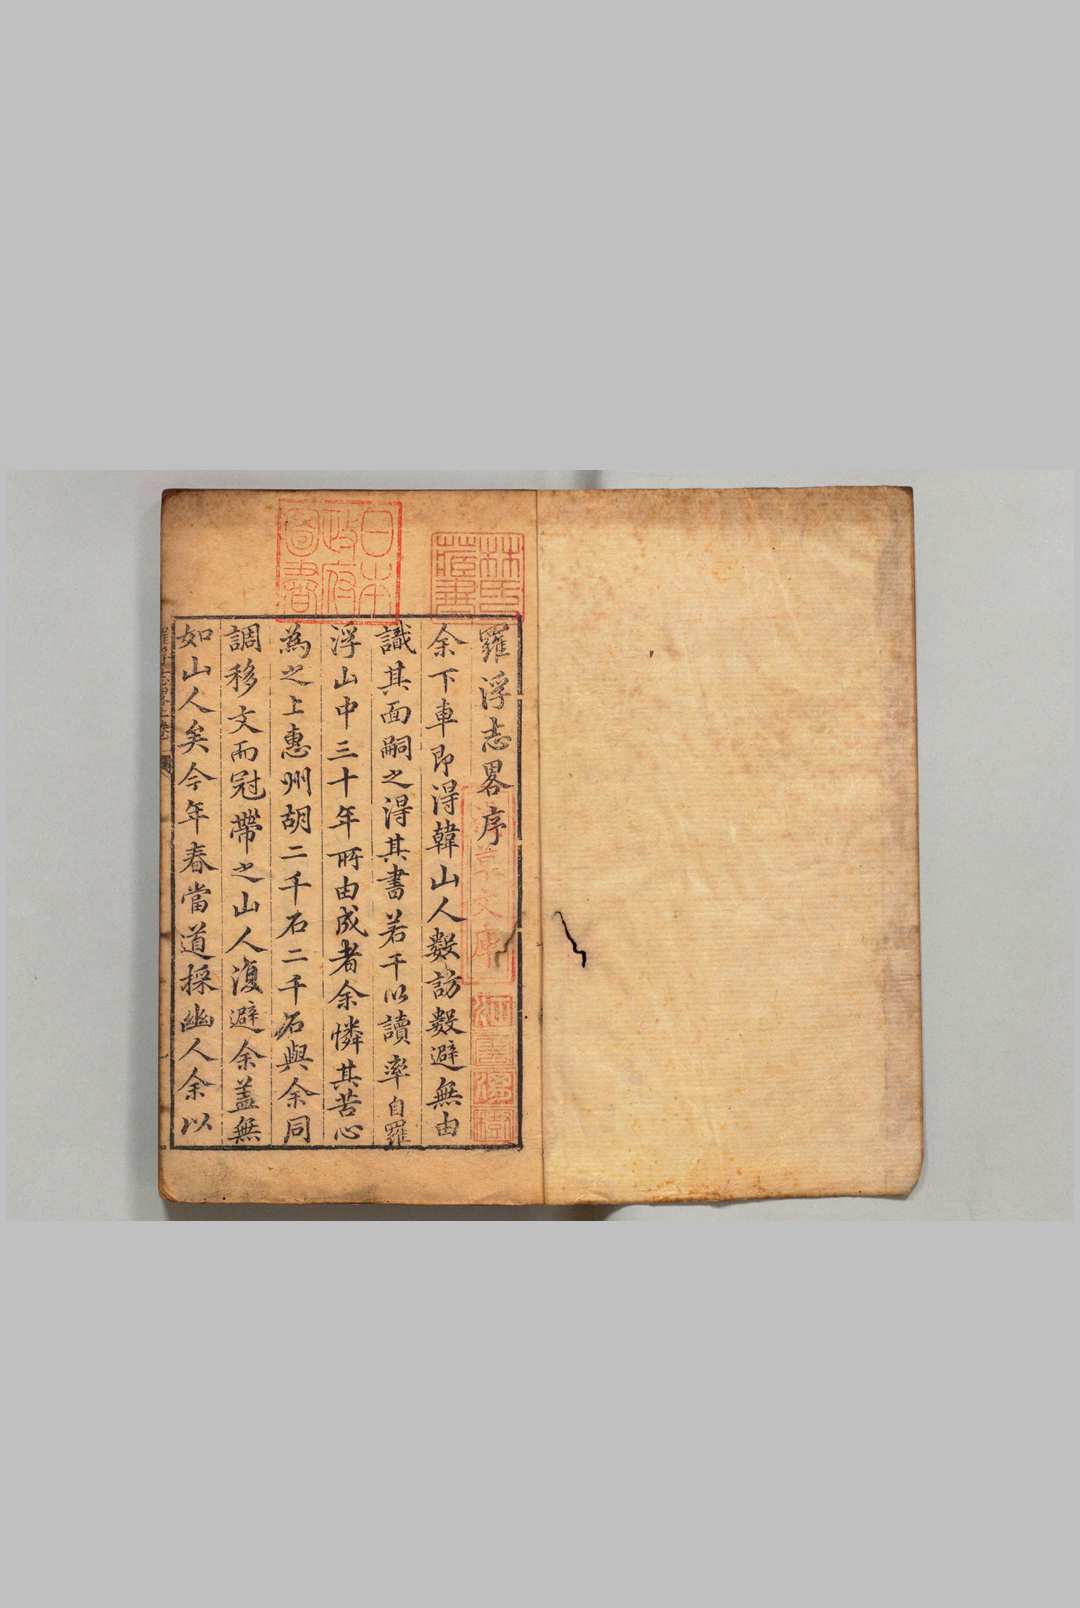 羅浮志畧序
余下車即得韓山人數訪數避無由
識其面嗣之得其書若干以讀率自羅
浮山中三十年所由成者余憐其苦心
為之上惠州胡二千石二千石與余同
調移文而冠帶之山人復避余盖無
如山人矣今年春當道採幽人余以
林氏藏書
日本政府圖書
淺草文庫